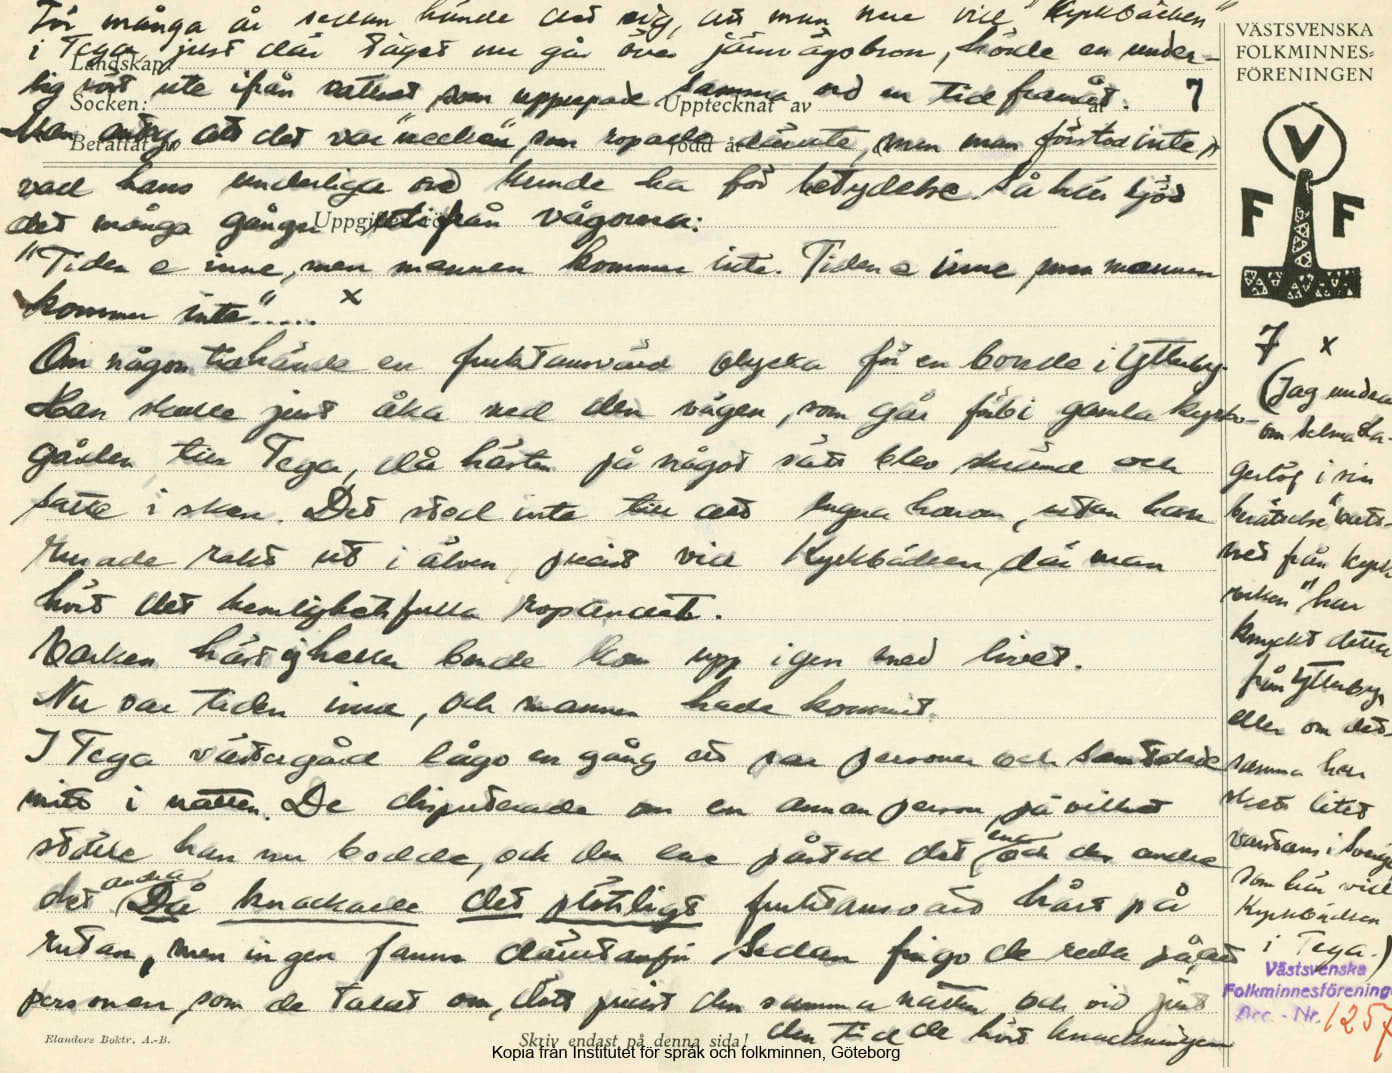 För många år sedan hände det sig, att man nere vid "Kyrkbäcken"
i Tega, just där tåget nu går över järnvägsbron, hörde en under-
lig röst ute ifrån vattnet, som upprepade samma ord en tid framåt.
Man antog att det var "necken", som ropade därute, men man förstod inte,
vad hans underliga ord kunde ha för betydelse. Så här ljöd
det många gånger utifrån vågorna:
"Tiden e inne, men mannen kommer inte. Tiden e inne, men mannen
kommer inte"..... x
Om någon tid hände en fruktansvärd olycka för en bonde i Ytterby.
Han skulle just åka ned den vägen, som går förbi gamla kyrko-
gården till Tega, då hästen på något sätt blev skrämd och
satte i sken. Det stod inte till att lugna honom, utan han
rusade rakt ut i älven, precist vid Kyrkbäcken, där man
hört det hemlighetsfulla ropandet.
Varken häst ej heller bonde kom upp igen med livet.
Nu var tiden inne, och mannen hade kommit.
I Tega västergård lågo en gång ett par personer och samtalade
mitt i natten. De disputerade om en annan person, på vilket
ställe han nu bodde, och den ene påstod det ena och den andre
det andra. Då knackade det plötsligt fruktansvärt hårt på
rutan, men ingen fanns därutanför. Sedan fingo de reda på, att
personen, som de talat om, dött precist den samma natten och vid just
den tid de hört knackningen
Landskap:
Socken:
Upptecknat av
Berättat av
född år
VÄSTSVENSKA
FOLKMINNES=
FÖRENINGEN
V
F F
7
7 x
(Jag undrar
om Selma La-
gerlöf i sin
berättelse "vatt-
net från kyrk-
viken" har
knyckt detta
från Ytterby,
eller om det-
samma har
skett litet
varstans i Sverige
som här vid
Kyrkbäcken
i Tega.)
Västsvenska
Folkminnesförening
Acc. - Nr. 1257
Elanders Boktr. A.-B.
Skriv endast på denna sida!
Kopia från Institutet för språk och folkminnen, Göteborg